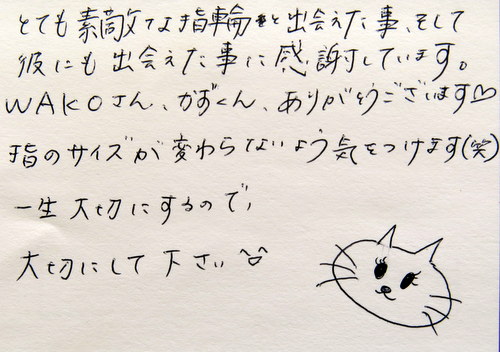 とても素敵な指輪と出会えた事、そして
彼にも出会えた事に感謝しています。
WAKOさん、かずくん、ありがとうございます♡
指のサイズが変わらないよう気をつけます(笑)
一生大切にするので、
大切にして下さい^^